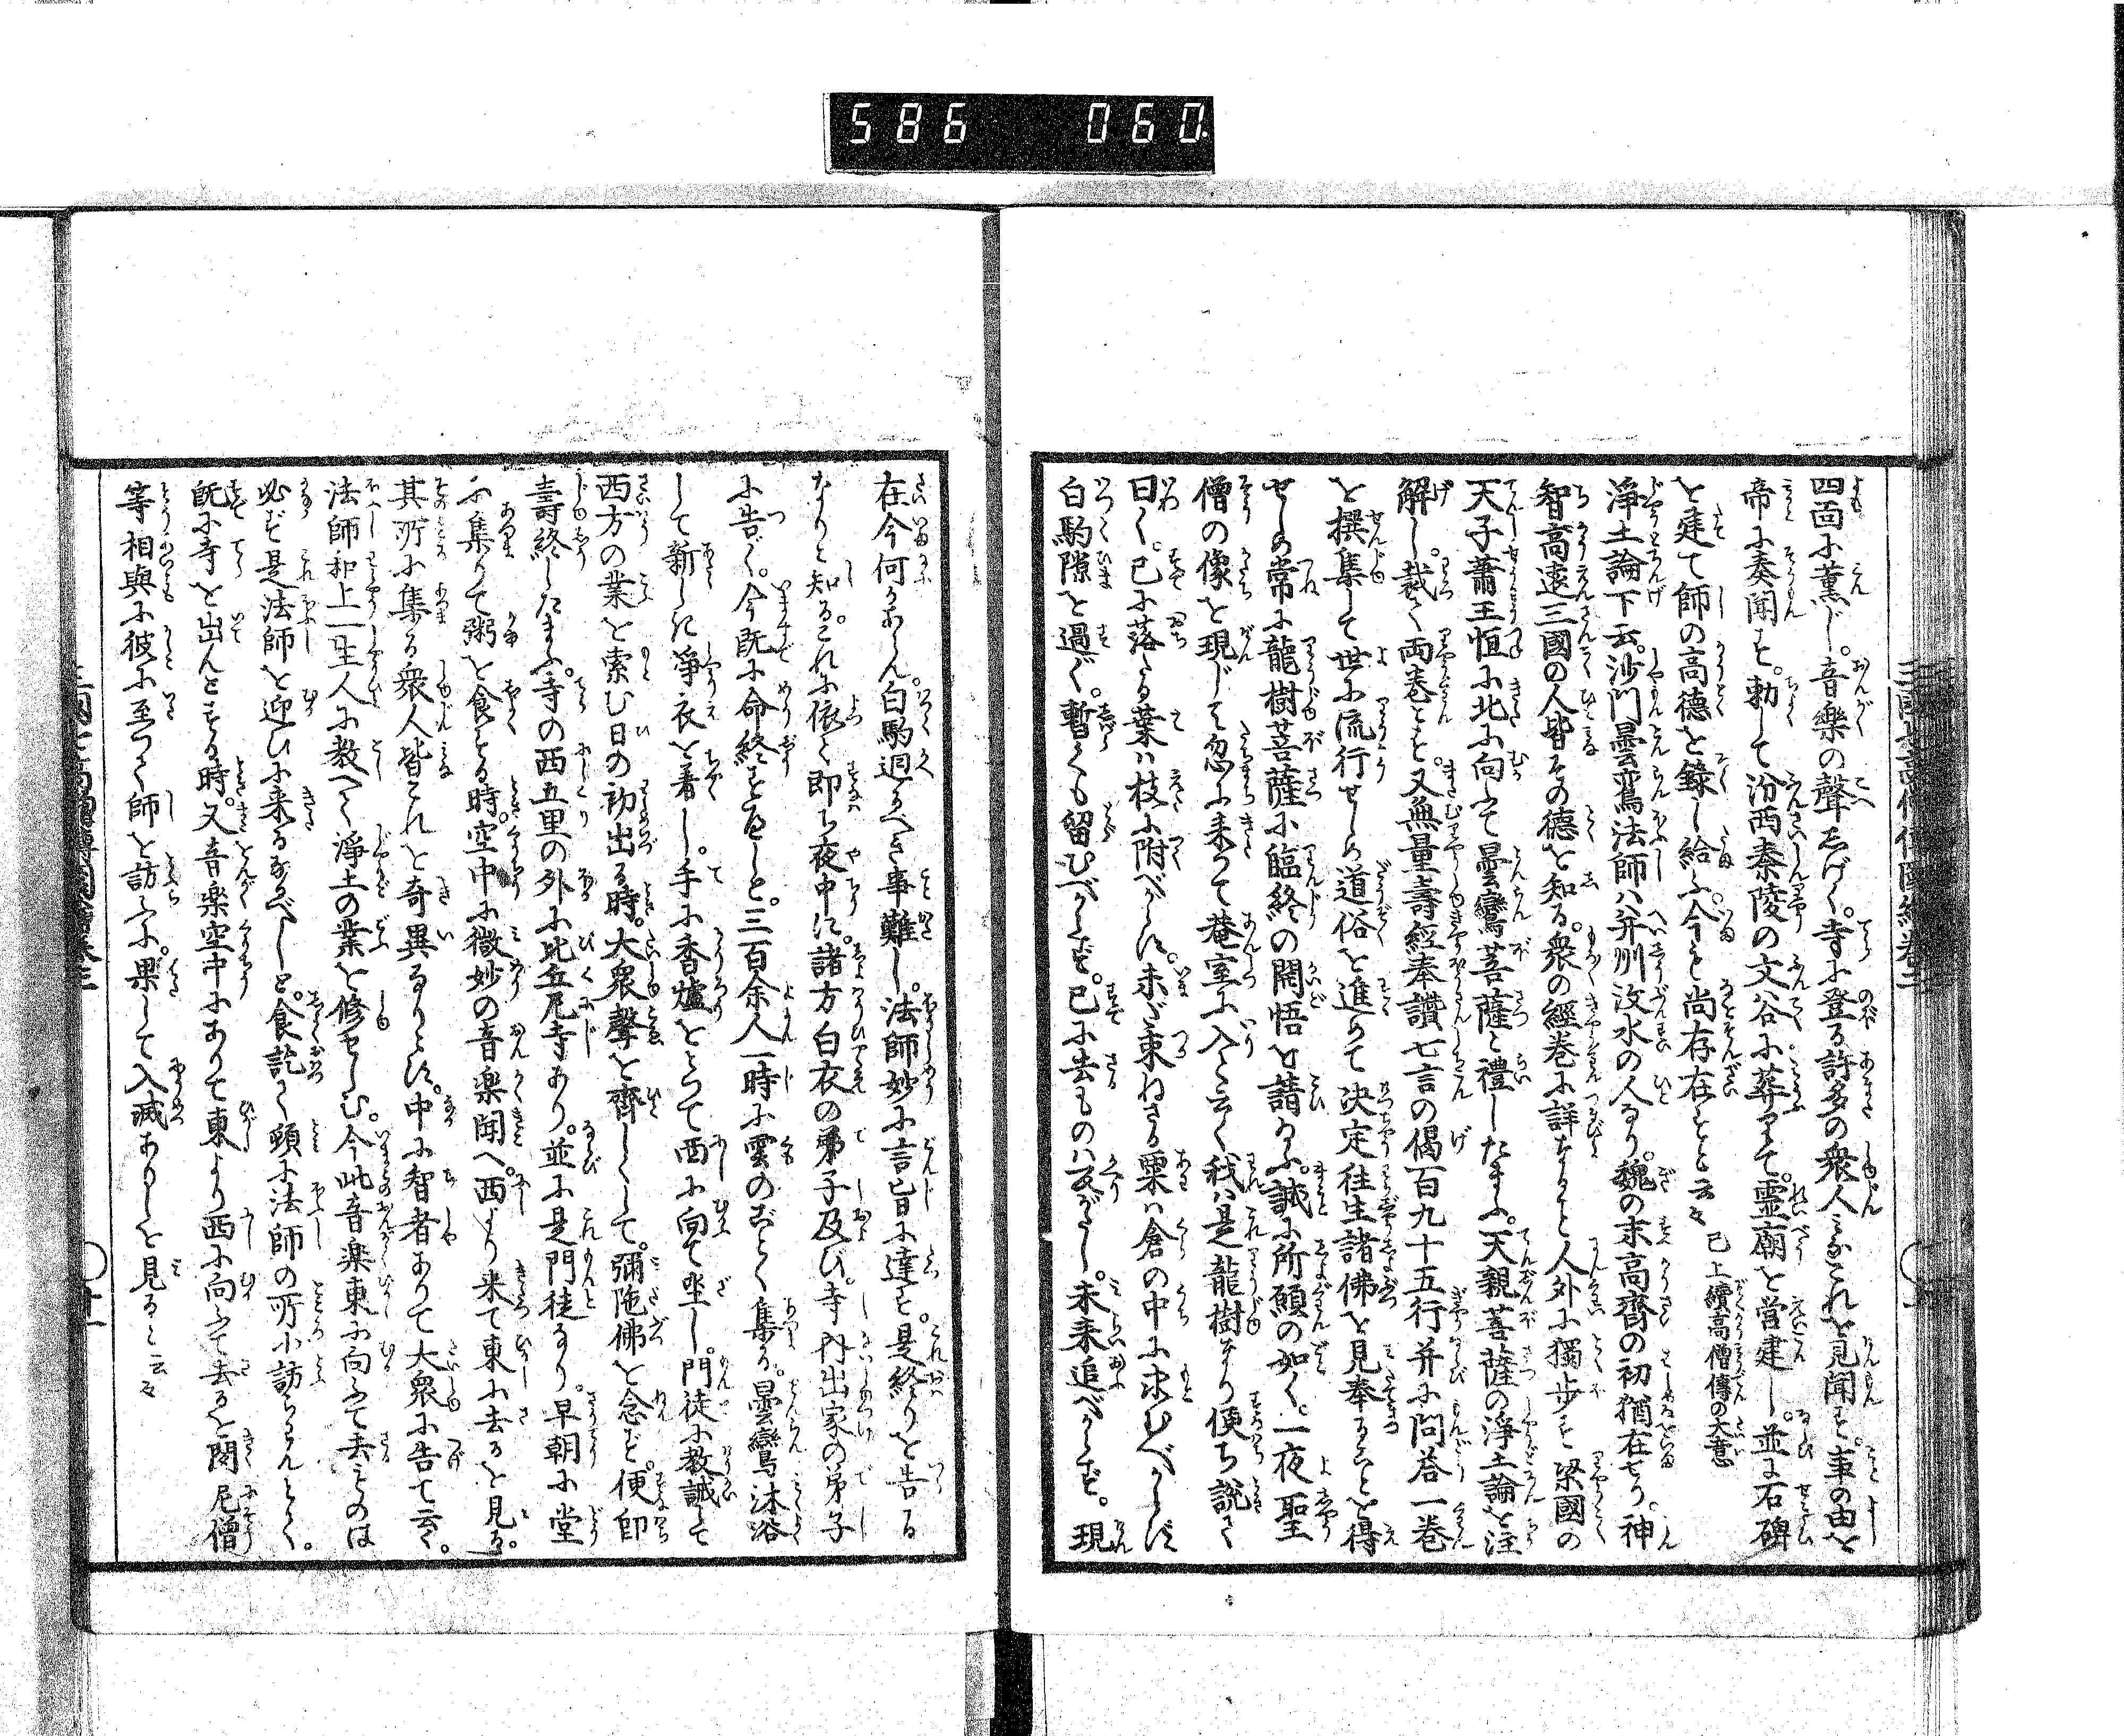 586 060
四面に薫じ。音樂の聲しげく。寺に登る許多の衆人みなこれを見聞す。事の由を
帝に奏聞す。勅して汾西泰陵の文谷に葬りて。霊廟を営建し。並に石碑
を建て師の高德を錄し給ふ。今も尚存在すと云々 已上續高僧傳の大意
淨土論下云。沙門曇鸞法師ハ并州汶水の人なり。魏の末高齊の初猶在せり。神
智高遠三國の人皆その德を知る。衆の經巻に詳なること人外に獨歩す梁國の
天子蕭王恒に北に向ふて曇鸞菩薩と禮したまふ。天親菩薩の淨土論を注
解し。裁て両巻とす。又無量壽經奉讃七言の偈百九十五行并に問荅一巻
を撰集して世に流行せしめ道俗を進めて決定往生諸佛を見奉ることを得
せしめ常に龍樹菩薩に臨終の開悟を請給ふ。誠に所願の如く。一夜聖
僧の像を現じて忽ふ来りて菴室ふ入て云く我ハ是龍樹なり便ち説て
曰く。已に落る葉ハ枝ふ附べからず。未ダ束ねざる粟ハ倉の中ふ求むべからず
白駒隙を過ぐ。暫くも留むべからず。已に去ものハ反がたし。未来追べからず。現
在今何かあらん。白駒迴るべき事難し。法師妙に言旨に達す。是終りを告る
なりと知る。これに依て即ち夜中に。諸方白衣の弟子及び。寺内出家の弟子
に告ぐ。今既に命終すべしと。三百余人一時に雲のごとく集る。曇鸞沐浴
して新しき淨衣を着し。手に香爐をとつて西に向て坐し。門徒に教誡して
西方の業を索む日の初出る時。大衆聲を齊しくして。彌陁佛を念ず。便即
壽終したまふ。寺の西五里の外に比丘尼寺あり。並に是門徒なり。早朝に堂
に集りて粥を食する時。空中に微妙の音楽聞へ。西より来て東に去るを見る。
其所に集る衆人皆これを奇異なりとす。中に智者ありて大衆に告て云く。
法師和上一生人に教へて淨土の業を修せしむ。今此音楽東に向ふて去ものは
必ず是法師を迎ひに来るなるべしと。食訖て頭に法師の所に訪らんとく。
既に寺を出んとする時。又音楽空中にありて東より西に向ふて去るを聞 尼僧
等相與に彼に至つて師を訪ふ。果して入滅ありしを見ると云々